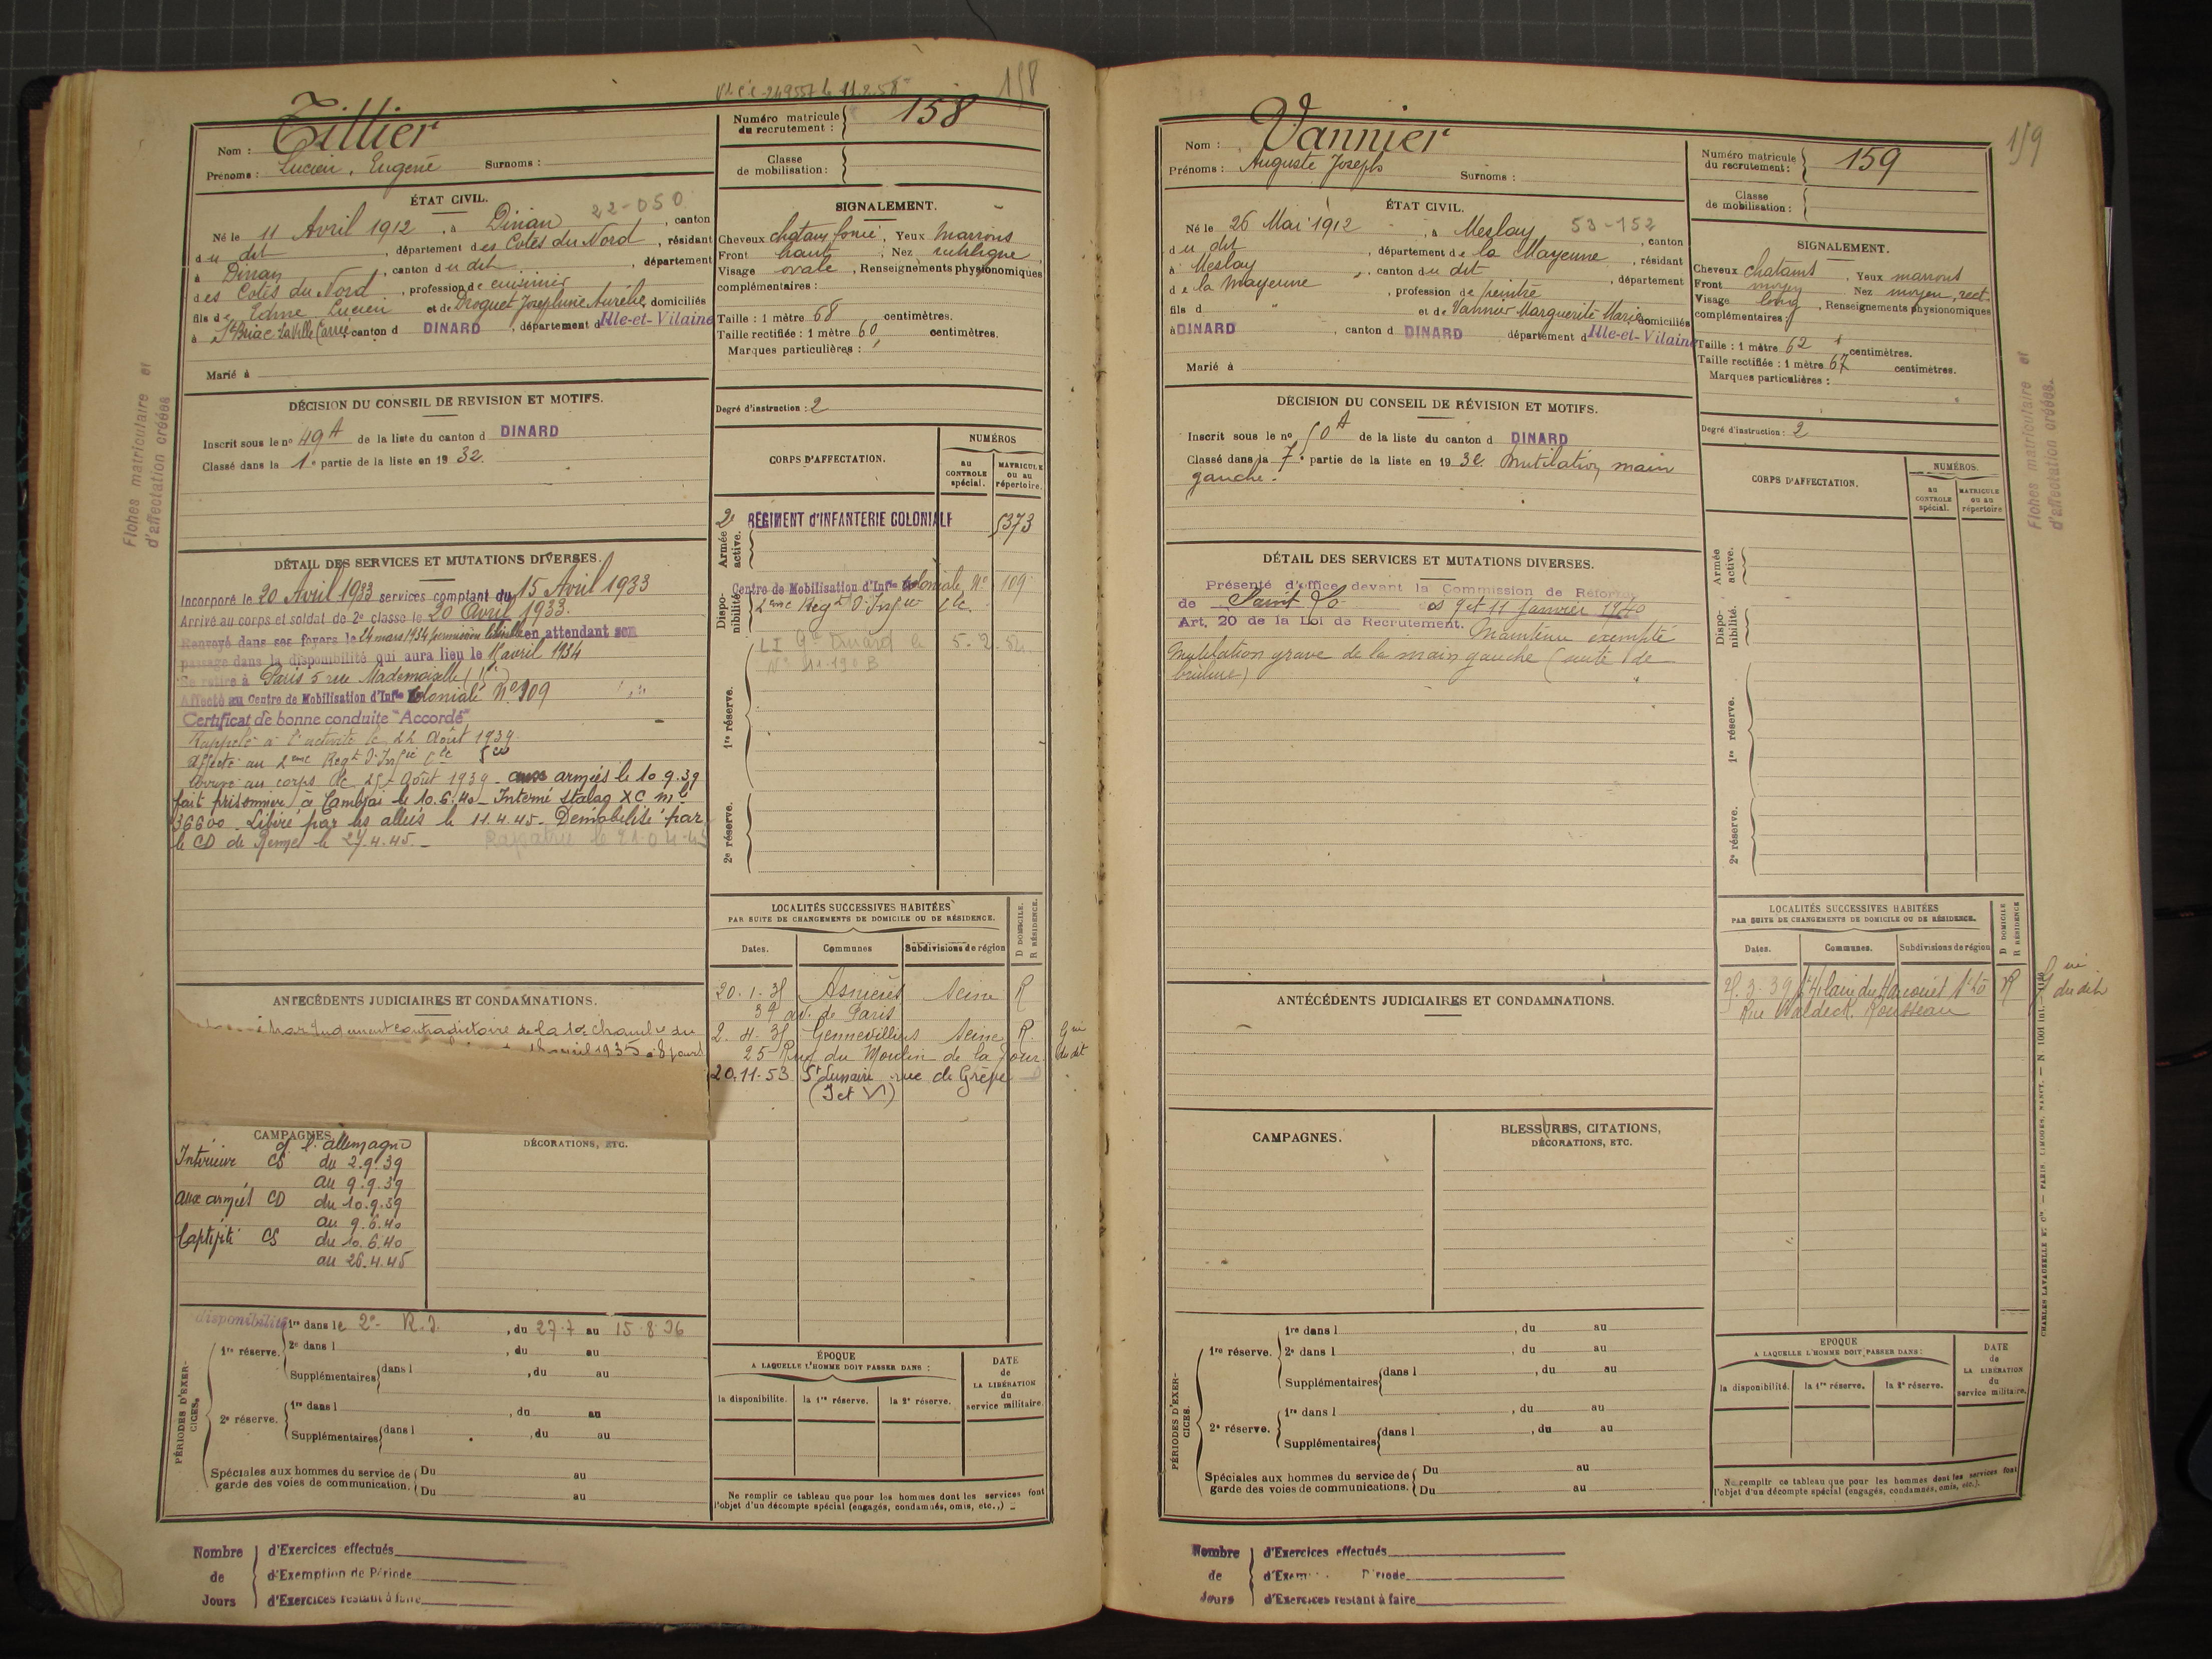 158
158
Tillier
Nom :
Prénoms : Lucien, Eugène Surnoms :
Numéro matricule du recrutement : 158
Classe de mobilisation :
ÉTAT CIVIL.
22-050
Né le 11 Avril 1912, à Dinan, canton
du dit, département des Côtes du Nord, résidant
à Dinan, canton du dit, département
des Côtes du Nord, profession de cuisinier
fils de Edme Lucien et de Droguet Joséphine Aurélie, domiciliés
à St Briac La Ville Carrée, canton d DINARD, département d'Ille-et-Vilaine
Marié à
SIGNALEMENT.
Cheveux chatains foncé, Yeux marrons
Front haut, Nez rectiligne
Visage ovale, Renseignements physionomiques
complémentaires :
Taille : 1 mètre 68 centimètres.
Taille rectifiée : 1 mètre 60 centimètres.
Marques particulières :
Degré d'instruction : 2
DÉCISION DU CONSEIL DE REVISION ET MOTIFS.
Inscrit sous le no 49A de la liste du canton d DINARD
Classé dans la 1e partie de la liste en 1932.
CORPS D'AFFECTATION.
NUMÉROS
AU CONTROLE spécial.
MATRICULE ou au répertoire.
Armée active.
2e RÉGIMENT d'INFANTERIE COLONIALE 5373
Disponibilité
Centre de Mobilisation d'Infie Coloniale No 109
2eme Regt d'Infie Cle.
5.2.54
1re réserve.
2e réserve.
DÉTAIL DES SERVICES ET MUTATIONS DIVERSES.
Incorporé le 20 Avril 1933 services comptant du 15 Avril 1933
Arrivé au corps et soldat de 2e classe le 20 Avril 1933.
Renvoyé dans ses foyers le 24 mars 1934 permission libérable en attendant son
passage dans la disponibilité qui aura lieu le 15 avril 1934
Se retire à Paris 5 rue Mademoiselle
Affecté au Centre de Mobilisation d'Infie Coloniale No 109
Certificat de bonne conduite "Accordé"
Rappelé à l'activité le 22 Août 1939
Affecté au 2eme Regt d'Infie Cle
Arrivé au corps le 25 Août 1939 - aux armées le 10.9.39
fait prisonnier à Cambrai le 10.6.40 - Interné Stalag XC mle
36600. Libéré par les alliés le 11.4.45. Démobilisé par
le CD de Rennes le 27.4.45. - Rapatrié le 21.04.45
LOCALITÉS SUCCESSIVES HABITÉES
PAR SUITE DE CHANGEMENTS DE DOMICILE OU DE RÉSIDENCE.
D DOMICILE. R RÉSIDENCE.
Dates. Communes Subdivisions de région
20.1.35 Asnières Seine R
39 av. de Paris
2.4.35 Gennevilliers Seine R. Gnie
25 Rue du Moulin de la Tour. du dit
20.11.53 St Lunaire rue de Grèpe D
(I et V)
ANTÉCÉDENTS JUDICIAIRES ET CONDAMNATIONS.
par Jugement contradictoire de la 10e chambre du
avril 1935 à 8 jours
CAMPAGNES
DÉCORATIONS, ETC.
c/ l'allemagne
Intérieure CS du 2.9.39
au 9.9.39
aux armées CD du 10.9.39
au 9.6.40
Captivité CS du 10.6.40
au 26.4.45
PÉRIODES D'EXERCICES.
disponibilité
1re réserve. 1re dans le 2e R.I., du 27.7 au 15.8.36
2e dans l , du au
Supplémentaires dans l , du au
2e réserve. 1re dans l , du au
Supplémentaires dans l , du au
Spéciales aux hommes du service de garde des voies de communication. Du au
Du au
ÉPOQUE
A LAQUELLE L'HOMME DOIT PASSER DANS :
la disponibilité. la 1re réserve. la 2e réserve.
DATE de LA LIBÉRATION du service militaire.
Ne remplir ce tableau que pour les hommes dont les services font
l'objet d'un décompte spécial (engagés, condamnés, omis, etc.,)
Nombre de Jours
d'Exercices effectués
d'Exemption de Période
d'Exercices restant à faire
Fiches matriculaire et
d'affectation créées
159
Vannier
Nom :
Prénoms : Auguste Joseph Surnoms :
Numéro matricule du recrutement : 159
Classe de mobilisation :
ÉTAT CIVIL.
53-152
Né le 26 Mai 1912, à Meslay, canton
du dit, département de la Mayenne, résidant
à Meslay, canton du dit, département
de la Mayenne, profession de peintre
fils d " et de Vannier Marguerite Marie, domiciliés
à DINARD, canton d DINARD département d'Ille-et-Vilaine
Marié à
SIGNALEMENT.
Cheveux chatains, Yeux marrons
Front moyen Nez moyen, rect.
Visage long, Renseignements physionomiques
complémentaires :
Taille : 1 mètre 62 centimètres.
Taille rectifiée : 1 mètre 67 centimètres.
Marques particulières :
Degré d'instruction : 2
DÉCISION DU CONSEIL DE RÉVISION ET MOTIFS.
Inscrit sous le no 50A de la liste du canton d DINARD
Classé dans la 7e partie de la liste en 1932 Mutilation main
gauche.
CORPS D'AFFECTATION.
NUMÉROS.
AU CONTROLE spécial.
MATRICULE ou au répertoire
Armée active.
Disponibilité.
1re réserve.
2e réserve.
DÉTAIL DES SERVICES ET MUTATIONS DIVERSES.
Présenté d'office devant la Commission de Réforme
de Saint Lô des 9 et 11 Janvier 1940
Art. 20 de la Loi de Recrutement. Maintenu exempté
Mutilation grave de la main gauche (suite de
brûlure)
LOCALITÉS SUCCESSIVES HABITÉES
PAR SUITE DE CHANGEMENTS DE DOMICILE OU DE RÉSIDENCE.
D DOMICILE R RÉSIDENCE
Dates. Communes. Subdivisions de région
25.3.39 St Hilaire du Harcouët St Lô R Gnie
Rue Waldeck Rousseau du dit
ANTÉCÉDENTS JUDICIAIRES ET CONDAMNATIONS.
CAMPAGNES.
BLESSURES, CITATIONS,
DÉCORATIONS, ETC.
PÉRIODES D'EXERCICES.
1re réserve. 1re dans l , du au
2e dans l , du au
Supplémentaires dans l , du au
2e réserve. 1re dans l , du au
Supplémentaires dans l , du au
Spéciales aux hommes du service de garde des voies de communications. Du au
Du au
ÉPOQUE
A LAQUELLE L'HOMME DOIT PASSER DANS :
la disponibilité. la 1re réserve. la 2e réserve.
DATE de LA LIBÉRATION du service militaire.
Ne remplir ce tableau que pour les hommes dont les services font
l'objet d'un décompte spécial (engagés, condamnés, omis, etc.).
Nombre de Jours
d'Exercices effectués
d'Exercices restant à faire
Fiches matriculaire et
d'affectation créées.
CHARLES LAVAUZELLE ET Cie — PARIS, LIMOGES, NANCY.